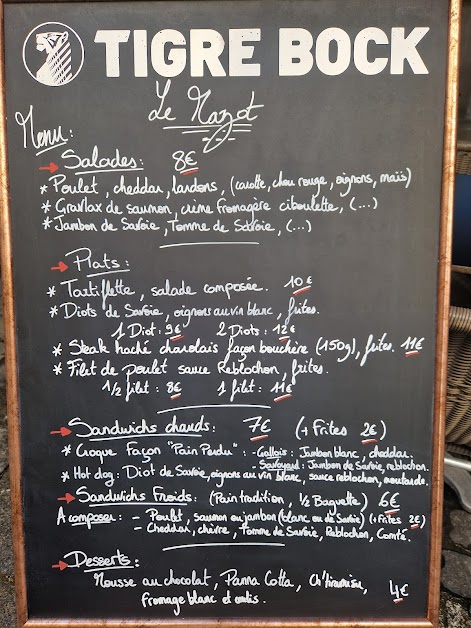 TIGRE BOCK
Le Mazot
Menu:
Salades: 8€
* Poulet, cheddar, lardons, (carotte, chou rouge, oignons, maïs)
* Gravlax de saumon, crème fromagère ciboulette, (...)
* Jambon de Savoie, Tomme de Savoie, (...)
Plats:
* Tartiflette, salade composée. 10€
* Diots de Savoie, oignons au vin blanc, frites.
1 Diot: 9€ 2 Diots: 12€
* Steak haché charolais façon bouchère (150g), frites. 11€
* Filet de poulet sauce Reblochon, frites.
1/2 filet: 8€ 1 filet: 11€
Sandwichs chauds: 7€ (+ Frites 2€)
* Croque Façon "Pain Perdu": - Gallois: Jambon blanc, cheddar.
- Savoyard: Jambon de Savoie, reblochon.
* Hot dog: Diot de Savoie, oignons au vin blanc, sauce reblochon, moutarde.
Sandwichs Froids: (Pain tradition, 1/2 Baguette) 6€
A composer: - Poulet, saumon ou jambon (blanc ou de Savoie) (+ Frites 2€)
- Cheddar, chèvre, Tomme de Savoie, Reblochon, Comté.
Desserts:
Mousse au chocolat, Panna Cotta, Ch'tiramisu, 4€
fromage blanc et coulis.